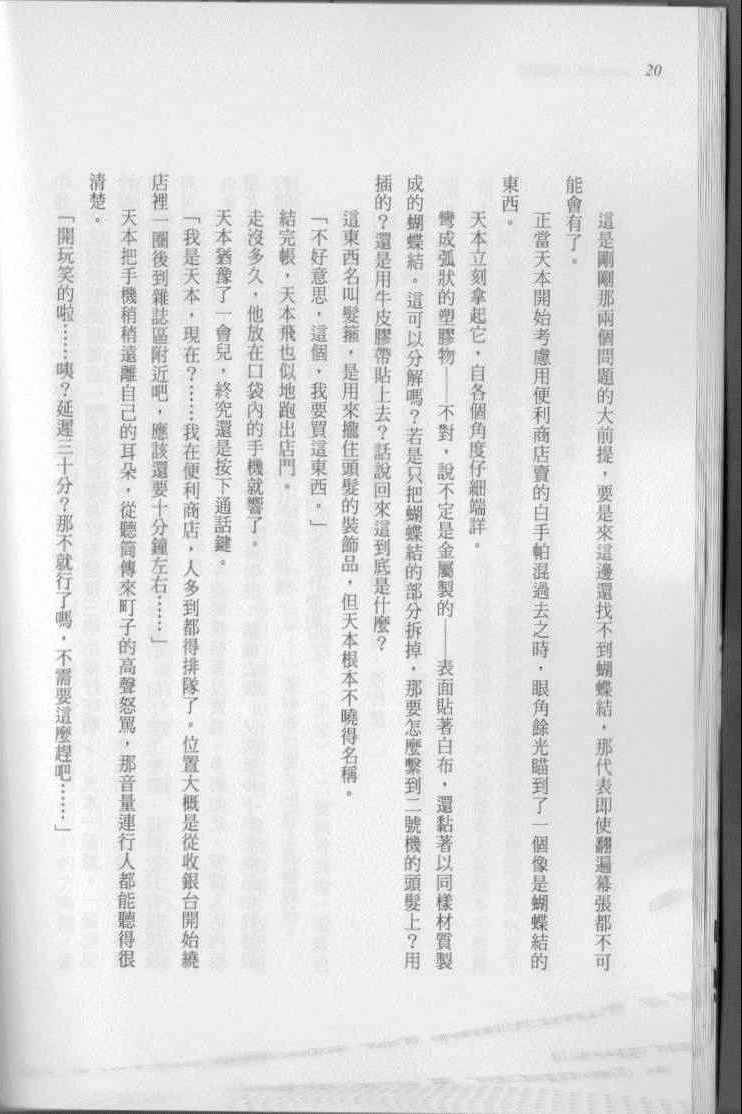 20
這是剛剛那兩個問題的大前提，要是來這邊還找不到蝴蝶結，那代表即使翻遍幕張都不可
能會有了。
正當天本開始考慮用便利商店賣的白手帕混過去之時，眼角餘光瞄到了一個像是蝴蝶結的
東西。
天本立刻拿起它，自各個角度仔細端詳。
彎成弧狀的塑膠物——不對，說不定是金屬製的——表面貼著白布，還黏著以同樣材質製
成的蝴蝶結。這可以分解嗎？若是只把蝴蝶結的部分拆掉，那要怎麼繫到二號機的頭髮上？用
插的？還是用牛皮膠帶貼上去？話說回來這到底是什麼？
這東西名叫髮箍，是用來攏住頭髮的裝飾品，但天本根本不曉得名稱。
「不好意思，這個，我要買這東西。」
結完帳，天本飛也似地跑出店門。
走沒多久，他放在口袋內的手機就響了。
天本猶豫了一會兒，終究還是按下通話鍵。
「我是天本，現在？……我在便利商店，人多到都得排隊了。位置大概是從收銀台開始繞
店裡一圈後到雜誌區附近吧，應該還要十分鐘左右……」
天本把手機稍稍遠離自己的耳朵，從聽筒傳來町子的高聲怒罵，那音量連行人都能聽得很
清楚。
「開玩笑的啦……咦？延遲三十分？那不就行了嗎，不需要這麼趕吧……」